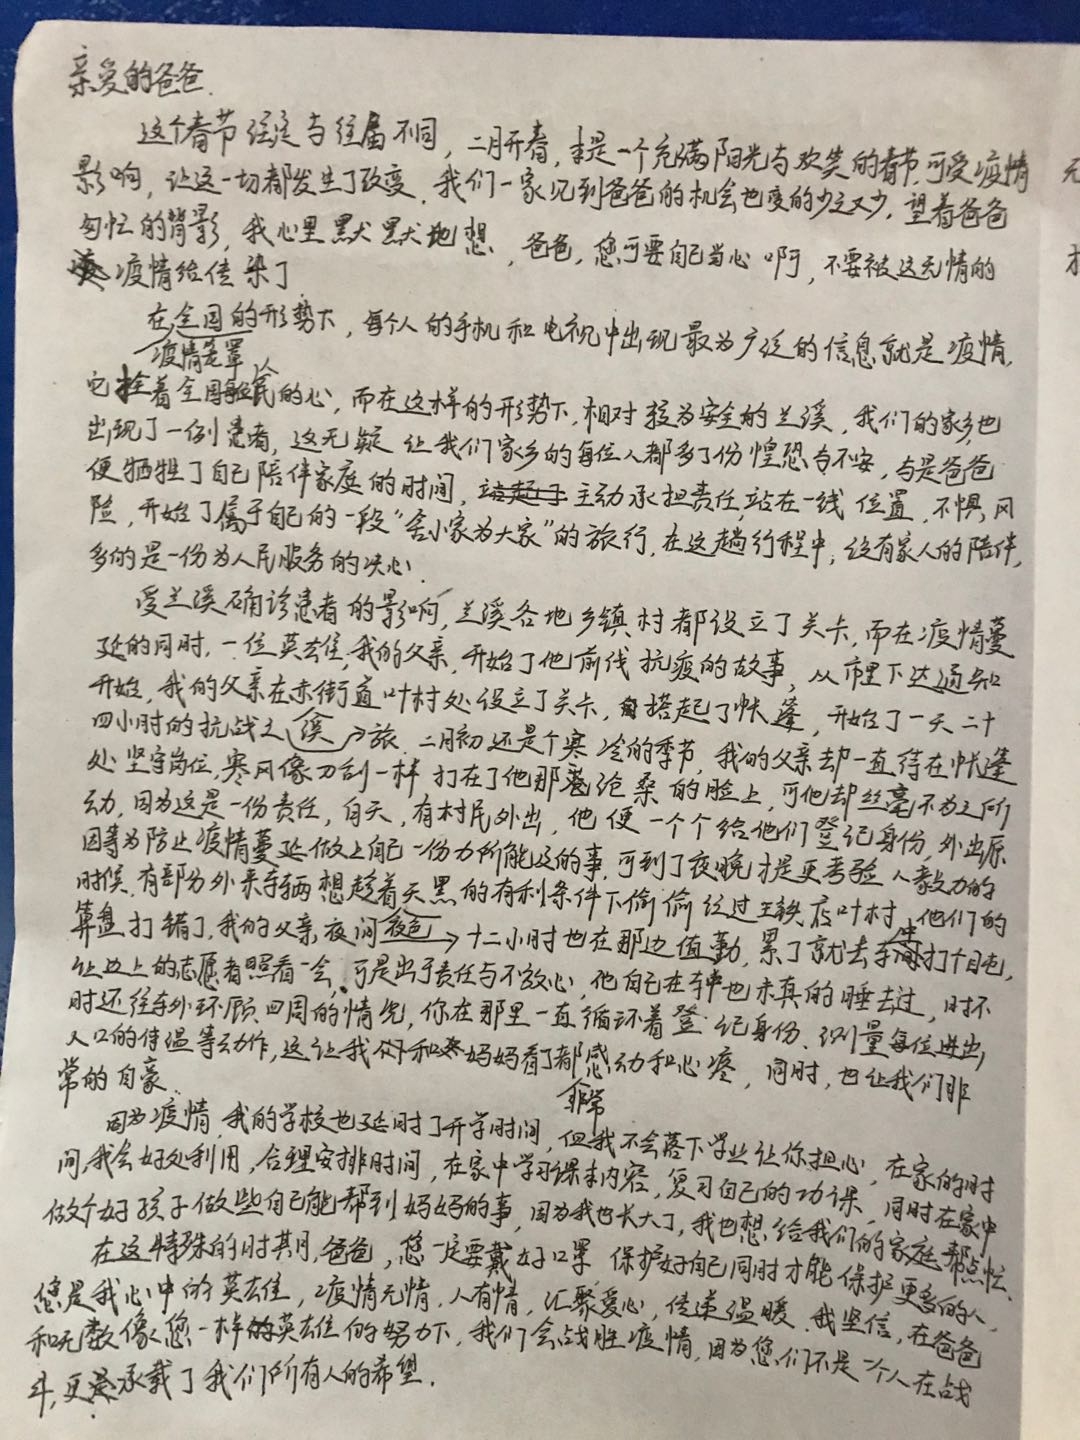 亲爱的爸爸.
这个春节注定与往届不同，二月开春，本是一个充满阳光与欢笑的春节,可受疫情
影响，让这一切都发生了改变.我们一家见到爸爸的机会也变的少之又少,望着爸爸
匆忙的背影,我心里默默地想，爸爸,您可要自己当心啊,不要被这无情的
疫情给传染了
在全国的形势下，每个人的手机和电视中出现最为广泛的信息就是疫情,
疫情笼罩
它拴着全国人民的心,而在这样的形势下,相对较为安全的兰溪,我们的家乡也
出现了一例患者,这无疑让我们家乡的每位人都多了份惶恐与不安,与是爸爸
便牺牲了自己陪伴家庭的时间,站起了主动承担责任,站在一线位置,不惧风
险,开始了属于自己的一段“舍小家为大家”的旅行,在这趟行程中,没有家人的陪伴,
多的是一份为人民服务的决心.
受兰溪确诊患者的影响,兰溪各地乡镇村都设立了关卡,而在疫情蔓
延的同时,一位英雄,我的父亲,开始了他前线抗疫的故事,从市里下达通知
开始,我的父亲在赤街道叶村处设立了关卡,搭起了帐篷,开始了一天二十
四小时的抗战之旅.二月初还是个寒冷的季节,我的父亲却一直待在帐篷
处坚守岗位,寒风像刀刮一样打在了他那沧桑的脸上,可他却丝毫不为之所
动,因为这是一份责任,白天,有村民外出,他便一个个给他们登记身份,外出原
因等为防止疫情蔓延做上自己一份力所能及的事.可到了夜晚才是更考验人毅力的
时候.有部分外来车辆想趁着天黑的有利条件下偷偷经过王铁店叶村,他们的
算盘打错了,我的父亲夜间十二小时也在那边值勤,累了就去车中打个盹,
让边上的志愿者照看一会,可是出于责任与不放心,他自己在车中也未真的睡去过,时不
时还往车外环顾四周的情况,你在那里一直循环着登记身份、测量每位进出
人口的体温等动作,这让我和妈妈看了都感动和心疼,同时,也让我们非
常的自豪.
非常
因为疫情,我的学校也延时了开学时间,但我不会落下学业让你担心,在家的时
间,我会好处利用,合理安排时间,在家中学习课本内容,复习自己的功课,同时在家中
做个好孩子做些自己能帮到妈妈的事,因为我也长大了,我也想给我们的家庭帮点忙.
在这特殊的时期,爸爸,您一定要戴好口罩,保护好自己同时才能保护更多的人,
您是我心中的英雄,疫情无情,人有情,汇聚爱心,传递温暖.我坚信,在爸爸
和无数像您一样的英雄的努力下,我们会战胜疫情,因为您们不是一个人在战
斗,更是承载了我们所有人的希望.